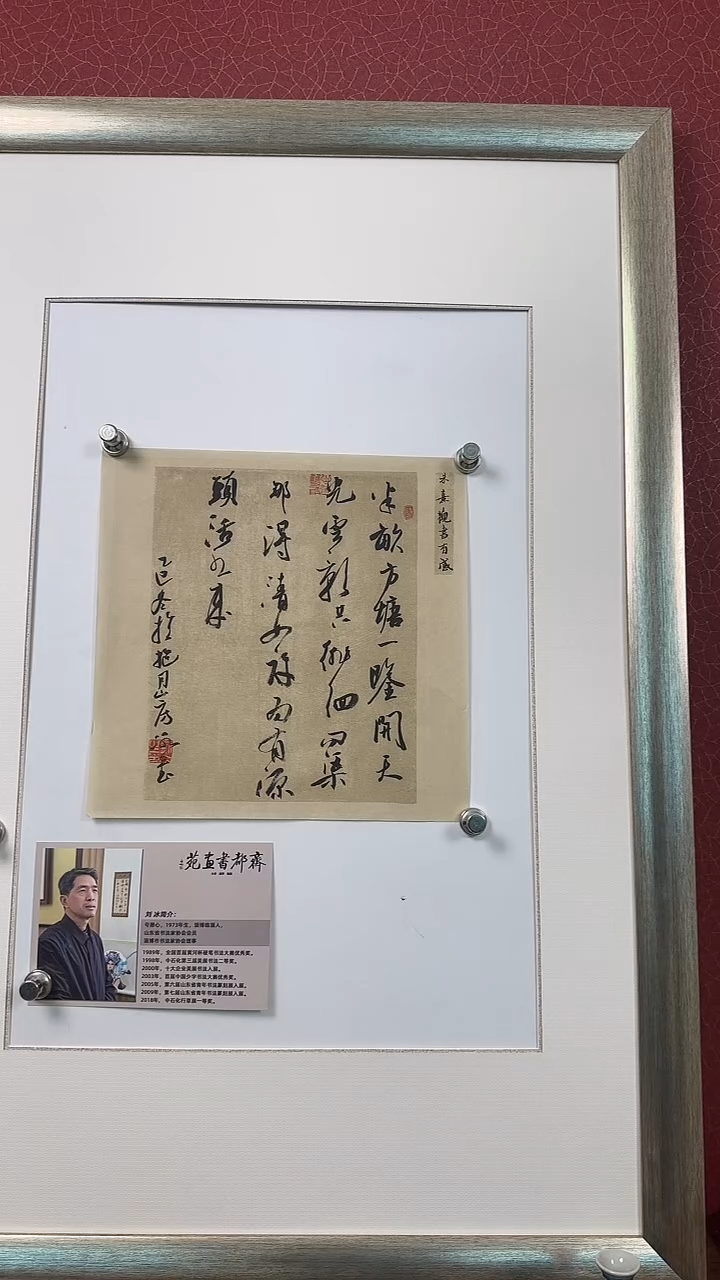 朱熹觀書有感
半畝方塘一鑒開天
光雲影共徘徊問渠
那得清如許為有源
頭活水來
乙巳冬於抱月山房冰書
齊都書畫苑
刘 冰简介：
1973年生，淄博临淄人，
山东省书法家协会会员
淄博市书法家协会理事
1989年，全国首届黄河杯硬笔书法大赛优秀奖。
1998年，中石化第三届美展书法二等奖。
2000年，十大企业美展书法入展。
2003年，首届中国少字书法大赛优秀奖。
2005年，第六届山东省青年书法篆刻展入展。
2009年，第七届山东省青年书法篆刻展入展。
2018年，中石化行草展一等奖。